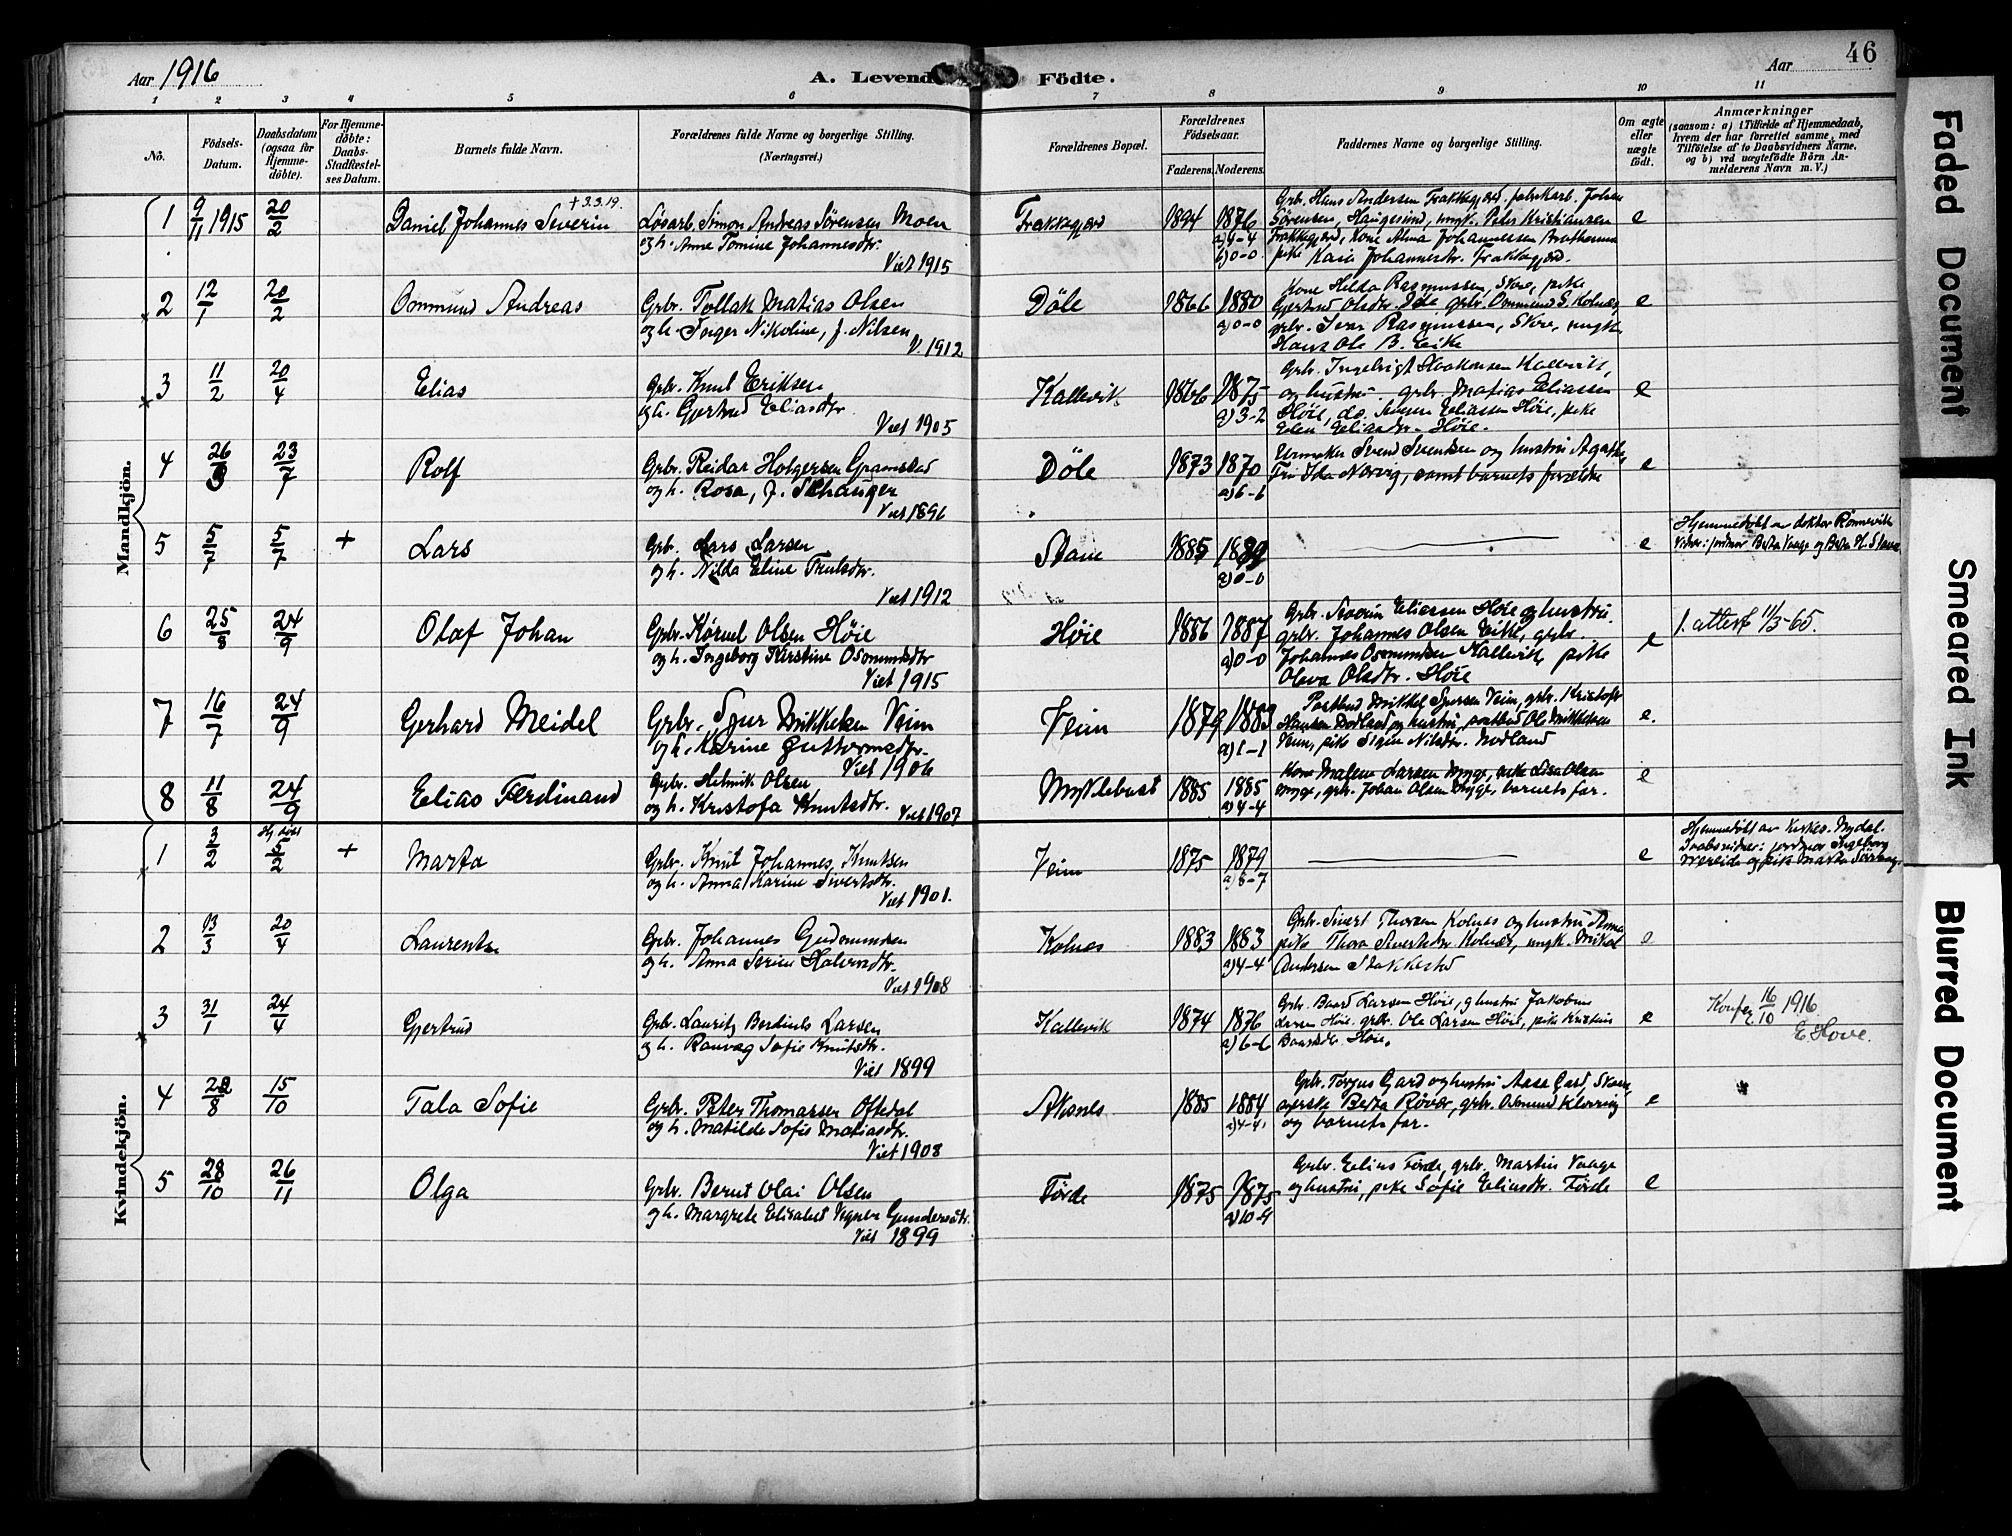 Aar 1916
A. Levend Födte.
Aar
46
1 2 3 4 5 6 7 8 9 10 11
No.
Födsels-Datum.
Daabsdatum (ogsaa for Hjemme-döbte).
For Hjemme-döbte: Daabs-Stadfæstel-ses Datum.
Barnets fulde Navn.
Forældrenes fulde Navne og borgerlige Stilling. (Næringsvei.)
Forældrenes Bopæl.
Forældrenes Födselsaar.
Faderens. Moderens.
Faddernes Navne og borgerlige Stilling.
Om ægte eller uægte födt.
Anmærkninger
(saasom: a) i Tilfælde af Hjemmedaab,
hvem der har forrettet samme, med
Tilföielse af to Daabsvidners Navne,
og b) ved uægtefödte Börn An-
melderens Navn m. V.)
Mandkjön.
1 9/11 1915 20/2 Daniel Johannes Severin + 3.3.19.
Løsarb. Simon Andreas Sørensen Moen
og h. Anne Tomine Johannesdtr.
Viet 1915
Frakkagjerd 1894 1876
a) 4-4
b) 0-0
Grb. Hans Andersen Frakkagjerd, fabrikarb. Johan
Sørensen, Haugesund, ungk. Peter Kristiansen
Frakkagjerd, Kone Alma Johannessen
pike Karie Johannesdtr. Frakkagjerd.
e
2 12/1 20/2 Ommund Andreas
Grbr. Tollak Matias Olsen
og h. Inger Nikoline, f. Nilsen
V. 1912
Döle 1866 1880
a) 0-0
Kone Hilda Rasmussen, Skre, pike
Gjertrud Olsdtr. Döle, grbr. Ommund S. Kolnes,
grbr. Ivar Rasmussen, Skre, ungk.
Hans Ole B. Eike
e
3 11/2 20/4 Elias
Grbr. Knut Eriksen
og h. Gjertrud Eliasdtr.
Viet 1905
Kallevik 1866 1875
a) 3-2
Grbr. Ingebrigt Haakonsen Kallevik,
og hustru. grbr. Matias Eliassen
Höie, do. Severin Eliassen Höie, pike
Elen Eliasdtr. Höie.
e
4 26/3 23/7 Rolf
Grbr. Reidar Holgersen Gramstad
og h. Rosa, f. Schanger
Viet 1896
Döle 1873 1870
a) 6-6
Urmaker Svend Svendsen og hustru Agathe,
Frk Ida Norvig, samt barnets forældre
e
5 5/7 5/7 + Lars
Grbr. Lars Larsen
og h. Nilda Eline Trulsdtr.
Viet 1912
Stave 1885 1889
a) 0-0
e
Hjemmedöbt av doktor Rönnevik
Vidner: jordmor Berta Vaage og Berta H. Stave
6 25/8 24/9 Olaf Johan
Grbr. Körnel Olsen Höie
og h. Ingeborg Kirstine Osmundsdtr
Viet 1915
Höie 1886 1887
a) 0-0
Grbr. Severin Eliassen Höie og hustru.
grbr. Johannes Olsen Eike, grbr.
Johannes Osmundsen Kallevik, pike
Olava Olsdtr. Höie
e
1. attest 11/3-65.
7 16/7 24/9 Gerhard Meidel
Grbr. Sjur Mikkelsen Veim
og h. Karine Guttormsdtr.
Viet 1906
Veim 1879 1883
a) 1-1
Postbud Mikkel Sjursen Veim, grbr. Kristofer
Hansen Nodland og hustru, postbud Ole Mikkelsen
Veim, pike Signe Nilsdtr. Nodland
e.
8 11/8 24/9 Elias Ferdinand
Grbr. Helmik Olsen
og h. Kristofa Knutsdtr. Viet 1907
Myklebust 1885 1885
a) 4-4
Kone Malene Larsen Myge, pike Lisa Olsen
Myge, grbr. Johan Olsen Myge, barnets far.
e
Kvindekjön.
1 3/2 Hj. döbt 5/2 + Marta
Grbr. Knut Johannes Knutsen
og h. Anna Karine Sivertsdtr.
Viet 1901.
Veim 1875 1879
a) 8-7
e
Hjemmedöbt av kirkes. Nydal.
Daabsvidner: jordmor Ingeborg
og pike Marta
2 13/3 20/4 Laurentse
Grbr. Johannes Gudmundsen
og h. Anna Serine Halvorsdtr.
Viet 1908
Kolnes 1883 1883
a) 4-4
Grbr. Sivert Thorsen Kolnes og hustru Anna
pike Thora Sivertsdtr. Kolnes, ungk. Mikal
Andersen Stakkestad
e
3 31/1 24/4 Gjertrud
Grbr. Lauritz Berdines Larsen
og h. Ranvæg Sofie Knutsdtr.
Viet 1899
Kallevik 1874 1876
a) 6-6
Grbr. Baard Larsen Höie, og hustru Jakobine
Larsen Höie. grbr. Ole Larsen Höie, pike Kristine
Baardsdtr. Höie.
e
Konfer. 16/10 1916
E. Hove.
4 22/8 15/10 Tala Sofie
Grbr. Peter Thomassen Oftedal
og h. Matilde Sofie Matiasdtr.
Viet 1908
Aksnes 1885 1884
a) 4-4
Grbr. Torgus Gard og hustru Aasa Gard, Skaare,
Berta Rövær, grbr. Osmund Klovning
og barnets far.
e
5 28/10 26/11 Olga
Grbr. Bernt Olai Olsen
og h. Margrete Elisabet Vegner Gundersdtr.
Viet 1899
Förde 1875 1875
a) 10-9
Grbr. Elius Förde, grbr. Martin Vaage
og hustru, pike Sofie Eliusdtr. Förde
e
Faded Document
Smeared Ink
Blurred Document